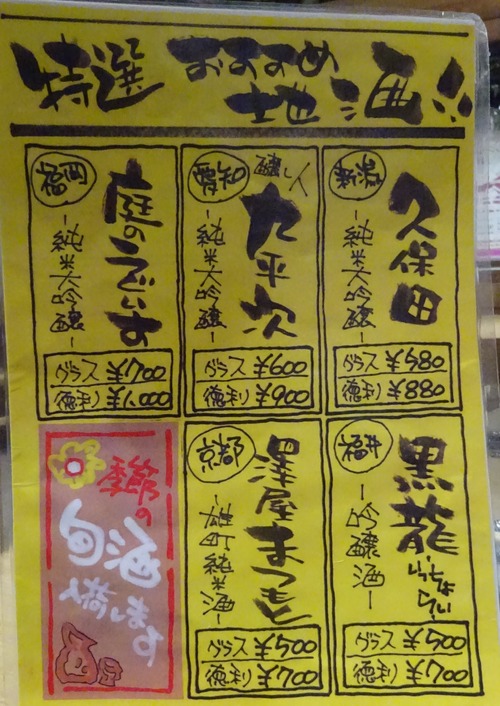 特選 おすすめ
地酒!!
新潟
久保田
-純米大吟醸-
グラス ¥580
徳利 ¥880
愛知
醸し人
九平次
-純米大吟醸-
グラス ¥600
徳利 ¥900
福岡
庭のうぐいす
-純米大吟醸-
グラス ¥700
徳利 ¥1,000
福井
黒龍
-吟醸酒-
グラス ¥500
徳利 ¥700
京都
澤屋まつもと
-雄町純米酒-
グラス ¥500
徳利 ¥700
季節の
旬酒
入荷します